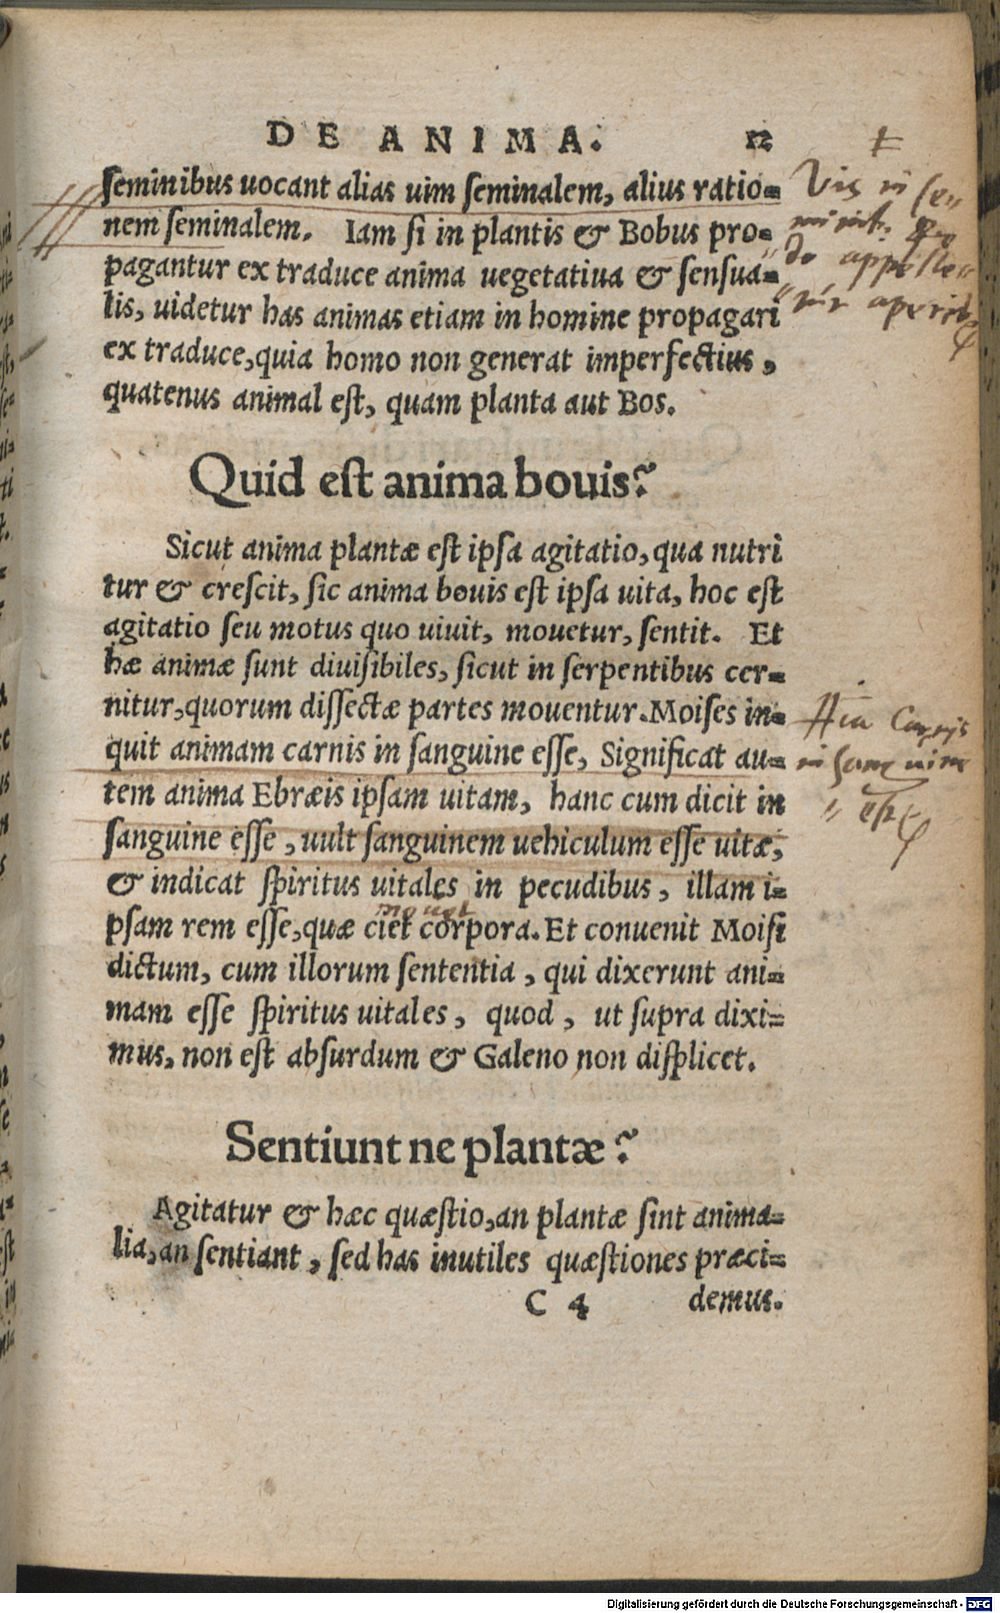 DE ANIMA. 12
seminibus uocant alias uim seminalem, alius ratio=
nem seminalem. Iam si in plantis & Bobus pro=
pagantur ex traduce anima uegetatiua & sensua=
lis, uidetur has animas etiam in homine propagari
ex traduce, quia homo non generat imperfectius,
quatenus animal est, quam planta aut Bos.
Vis in se„
do appella„
Quid est anima bouis?
Sicut anima plantæ est ipsa agitatio, qua nutri
tur & crescit, sic anima bouis est ipsa uita, hoc est
agitatio seu motus quo uiuit, mouetur, sentit. Et
hæ animæ sunt diuisibiles, sicut in serpentibus cer=
nitur, quorum dissectæ partes mouentur. Moises in=
quit animam carnis in sanguine esse, Significat au=
tem anima Ebræis ipsam uitam, hanc cum dicit in
sanguine esse, uult sanguinem uehiculum esse uitæ,
& indicat spiritus uitales in pecudibus, illam i=
mouet
psam rem esse, quæ ciet corpora. Et conuenit Moisi
dictum, cum illorum sententia, qui dixerunt ani=
mam esse spiritus uitales, quod, ut supra dixi=
mus, non est absurdum & Galeno non displicet.
Aia Carnis
in sanguine
„ est
Sentiunt ne plantæ?
Agitatur & hæc quæstio, an plantæ sint anima=
lia, an sentiant, sed has inutiles quæstiones præci=
C 4 demus.
Digitalisierung gefördert durch die Deutsche Forschungsgemeinschaft - DFG